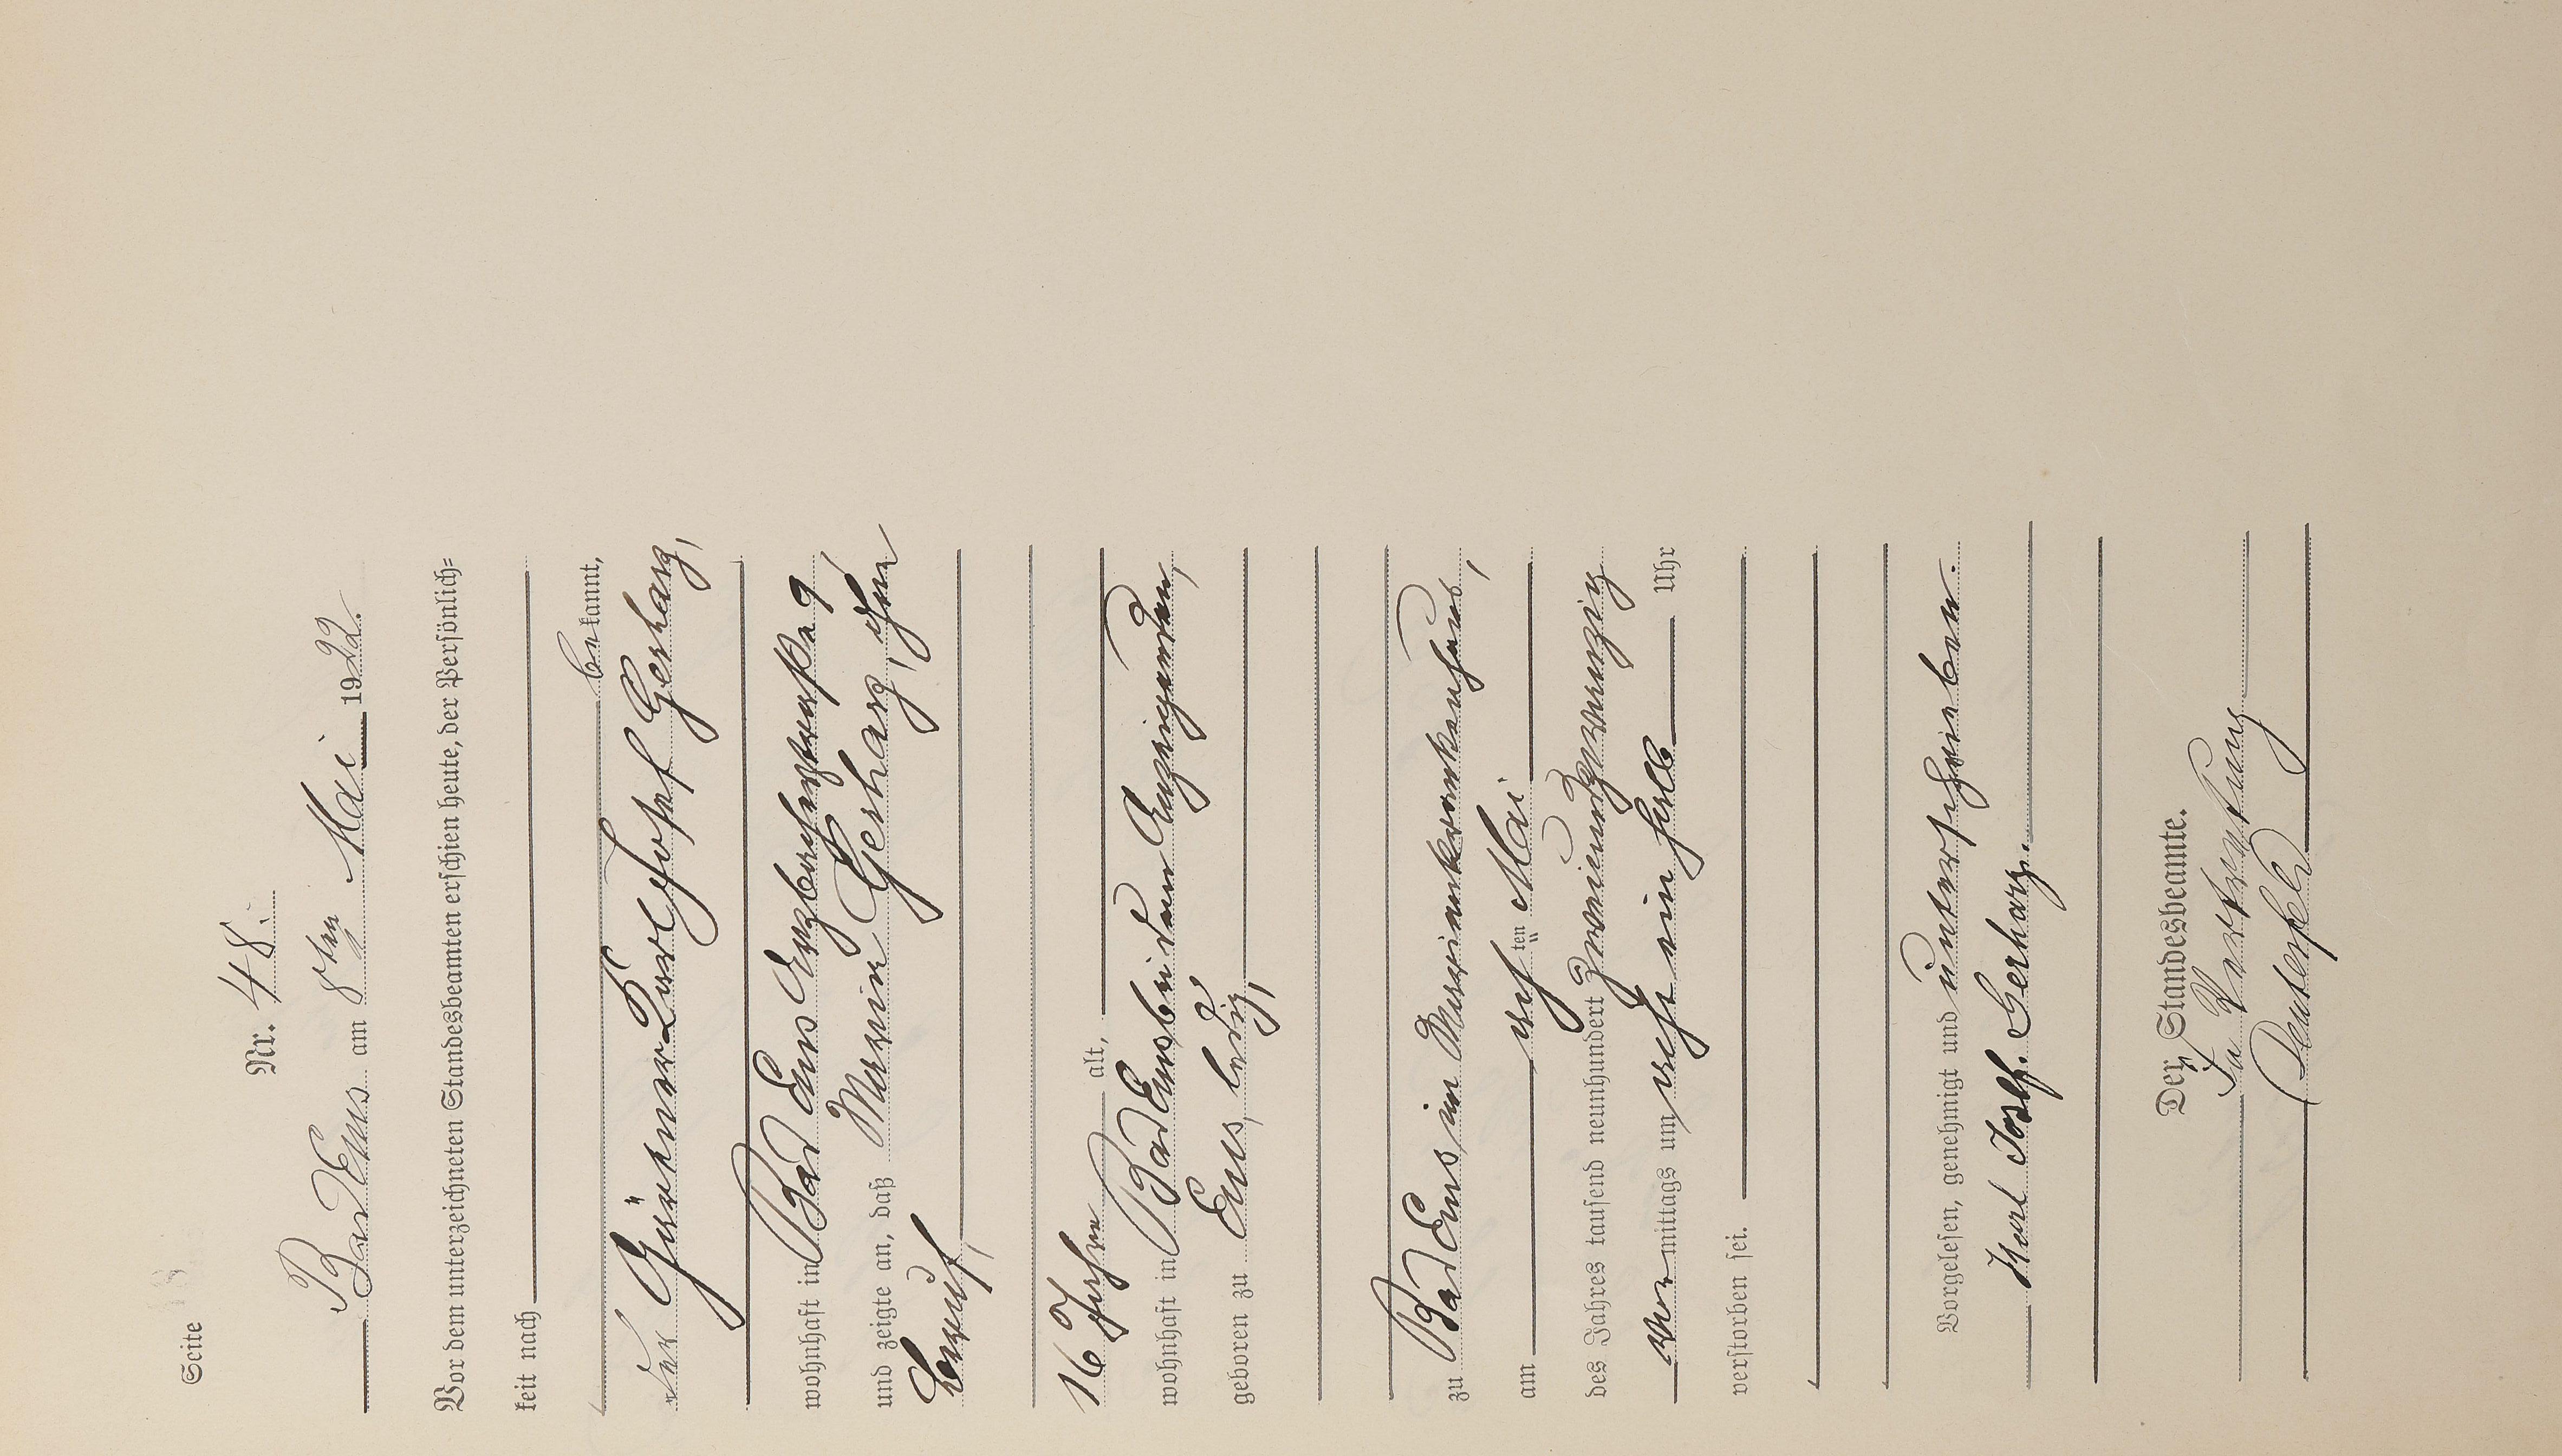 Seite
Nr. 48.
Bad Ems am 8ten Mai 1922.
Vor dem unterzeichneten Standesbeamten erschien heute, der Persönlich=
keit nach
bekannt,
der Gärtner Karl Josef Gerharz,
wohnhaft in Bad Ems Arzbacherstraße 9,
und zeigte an, daß Maria Gerharz, ohne
Beruf,
16 Jahre alt,
wohnhaft in Bad Ems bei dem Anzeigenden,
geboren zu Ems, ledig,
zu Bad Ems im Marienkrankenhaus,
am acht ten Mai
des Jahres tausend neunhundert zweiundzwanzig
vormittags um acht ein halb Uhr
verstorben sei.
Vorgelesen, genehmigt und unterschrieben.
Karl Josef. Gerharz.
Der Standesbeamte.
In Vertretung